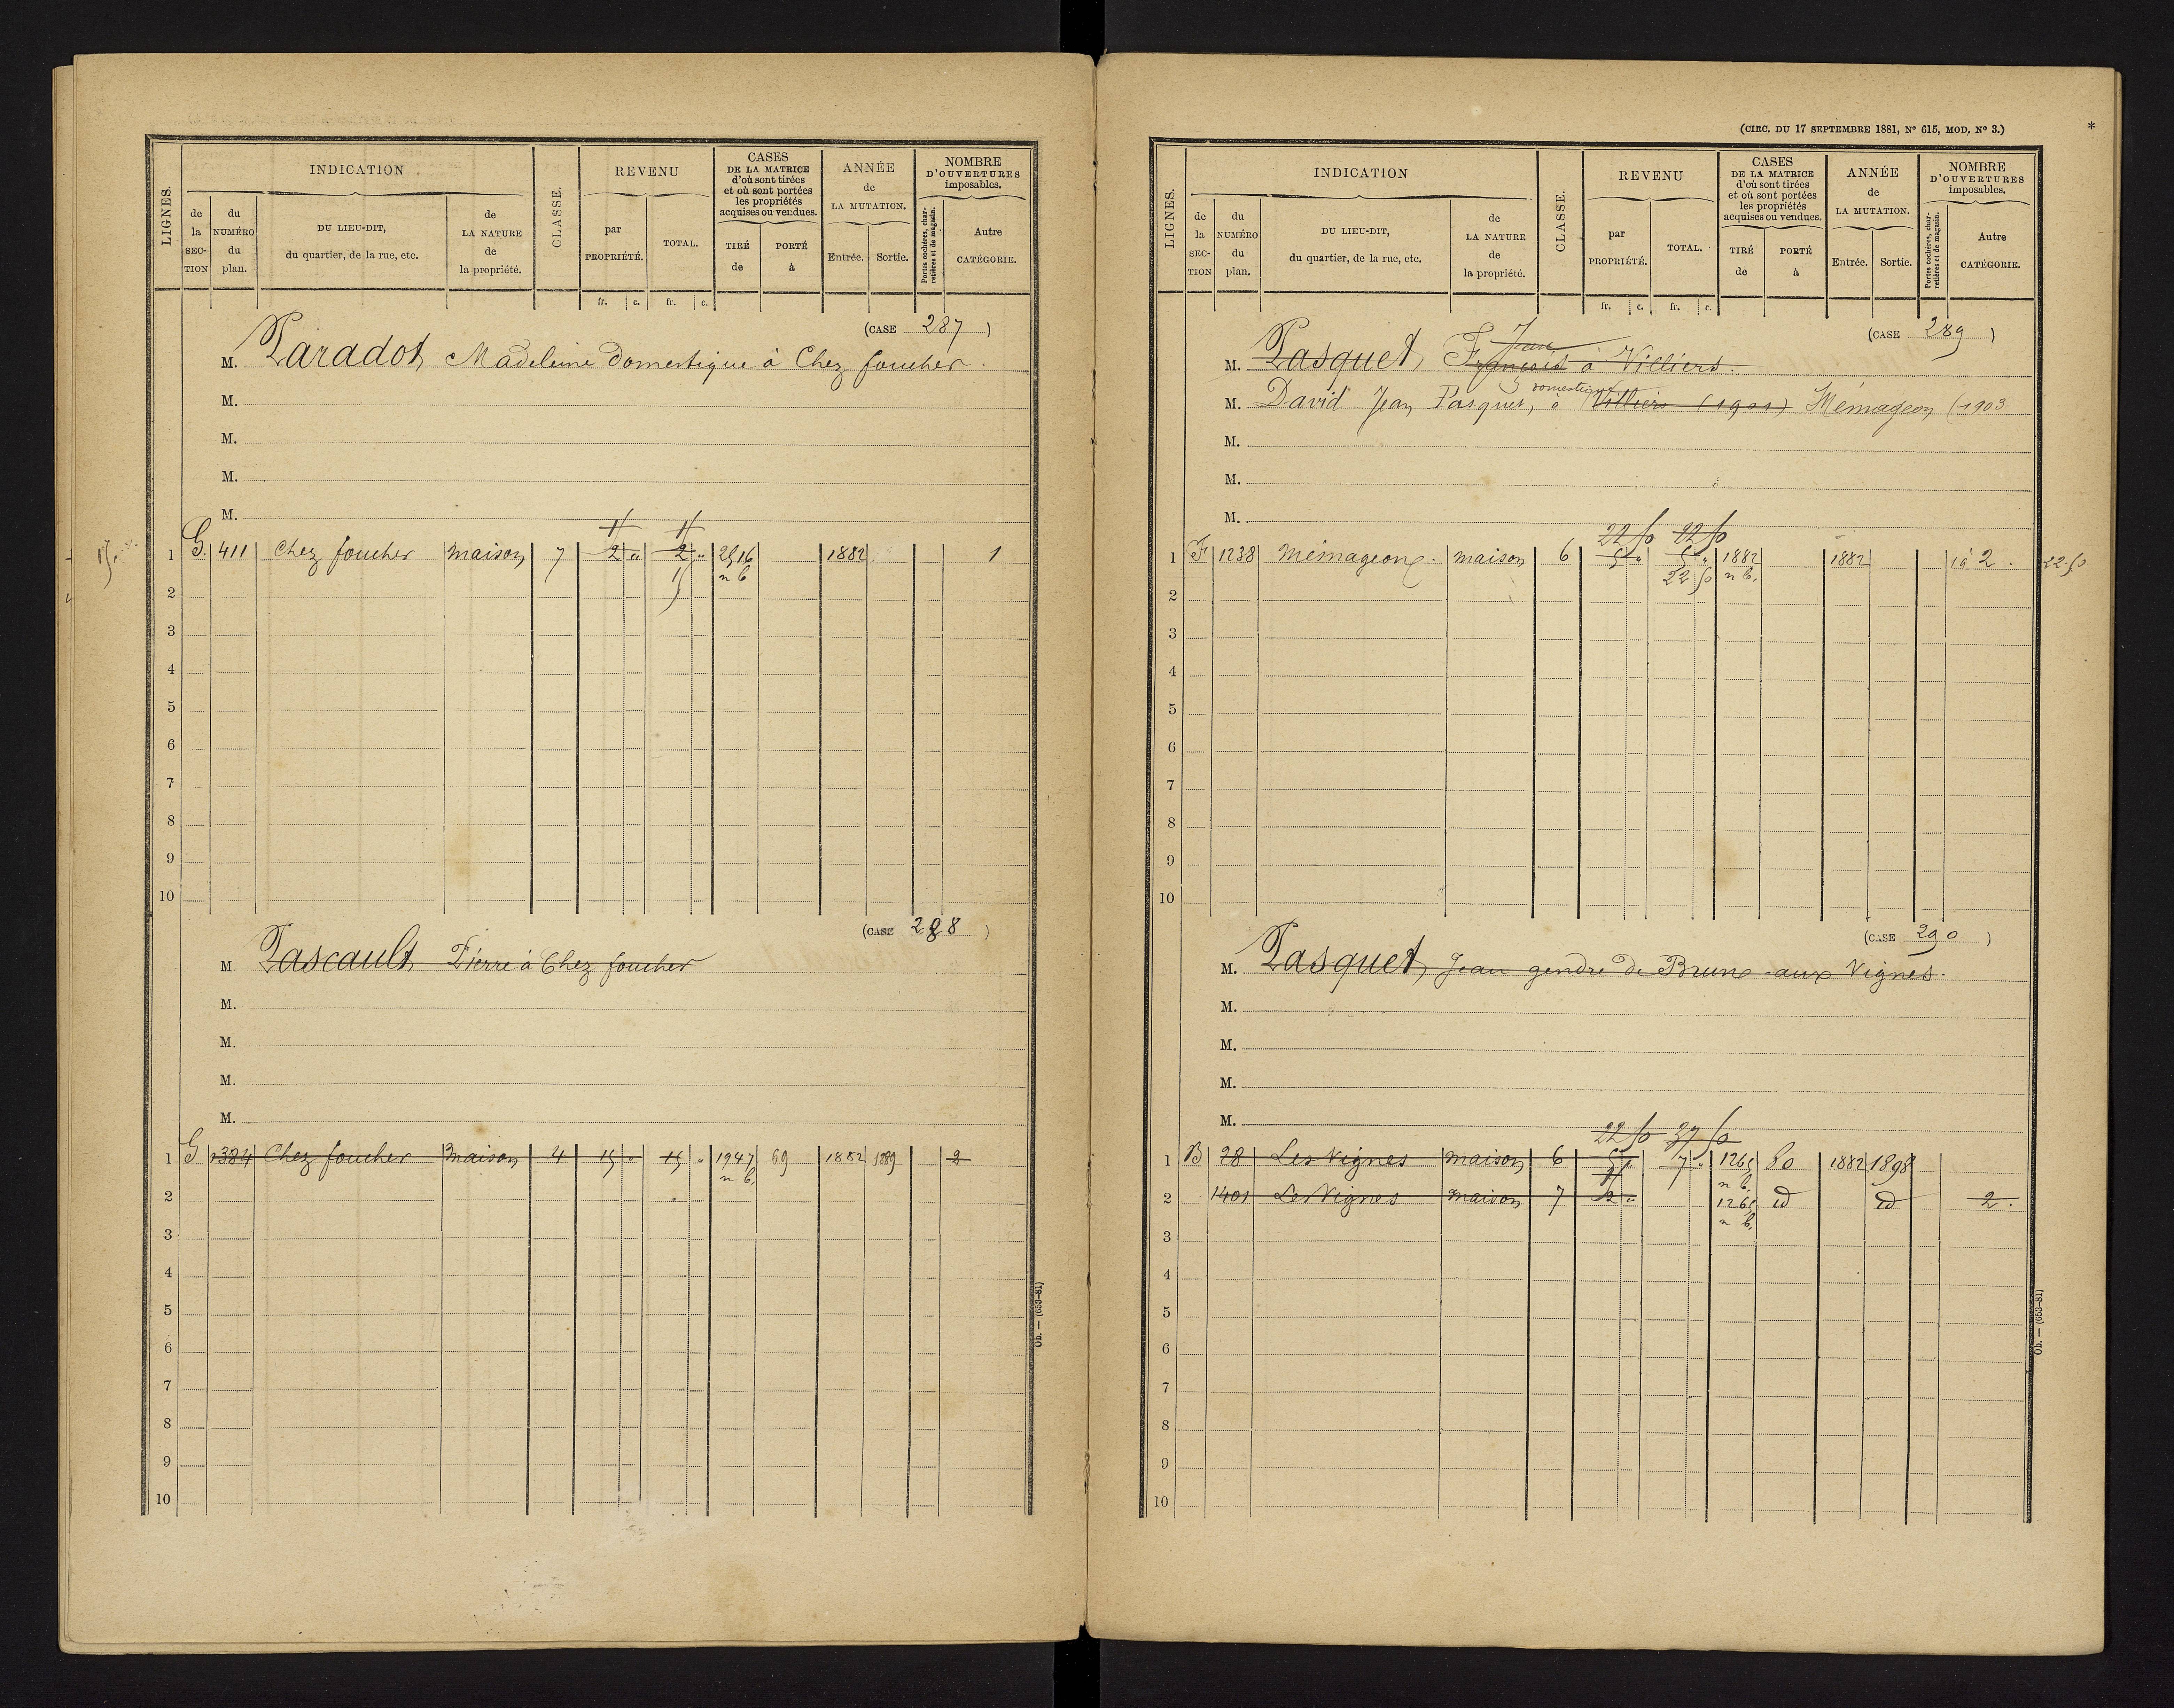 LIGNES.
INDICATION
de la SECTION
du NUMÉRO du plan.
DU LIEU-DIT, du quartier, de la rue, etc.
de LA NATURE de la propriété.
CLASSE.
REVENU
par PROPRIÉTÉ.
TOTAL.
fr. c. fr. c.
CASES DE LA MATRICE d'où sont tirées et où sont portées les propriétés acquises ou vendues.
TIRÉ de
PORTÉ à
ANNÉE de LA MUTATION.
Entrée. Sortie.
NOMBRE D'OUVERTURES imposables.
Portes cochères, charretières et de magasin.
Autre CATÉGORIE.
(CASE 287)
M. Paradot Madeleine domestique à Chez foucher.
M.
M.
M.
M.
1 G. 411 Chez foucher maison 7 2 " 2 " 2516 1882 1
n b
15
2
3
4
5
6
7
8
9
10
(CASE 288)
M. Pascault Pierre à Chez foucher
M.
M.
M.
M.
1 G 384 Chez foucher maison 4 15 " 15 " 1947 69 1882 1889 2
n b.
2
3
4
5
6
7
8
9
10
Ob. — (653-81)
(CIRC. DU 17 SEPTEMBRE 1881, N° 615, MOD. N° 3.)
*
LIGNES.
INDICATION
de la SECTION
du NUMÉRO du plan.
DU LIEU-DIT, du quartier, de la rue, etc.
de LA NATURE de la propriété.
CLASSE.
REVENU
par PROPRIÉTÉ.
TOTAL.
fr. c. fr. c.
CASES DE LA MATRICE d'où sont tirées et où sont portées les propriétés acquises ou vendues.
TIRÉ de
PORTÉ à
ANNÉE de LA MUTATION.
Entrée. Sortie.
NOMBRE D'OUVERTURES imposables.
Portes cochères, charretières et de magasin.
Autre CATÉGORIE.
(CASE 289)
Jean
M. Pasquet François à Villiers.
domestique
M. David Jean Pasquet, à Villiers (1901) Mémageon (1903
M.
M.
M.
22 50 22 50
1 F 1238 Mémageon. maison 6 5 " 5 " 1882 1882 1 à 2. 22.50
22 50 n b.
2
3
4
5
6
7
8
9
10
(CASE 290)
M. Pasquet Jean gendre de Brune aux Vignes.
M.
M.
M.
M.
22 50 37 50
1 B 28 Les Vignes maison 6 5 " 7 " 1265 80 1882 1898
n b.
2 1401 Les Vignes maison 7 2 " 1265 id id 2.
n b.
3
4
5
6
7
8
9
10
Ob. — (653-81)